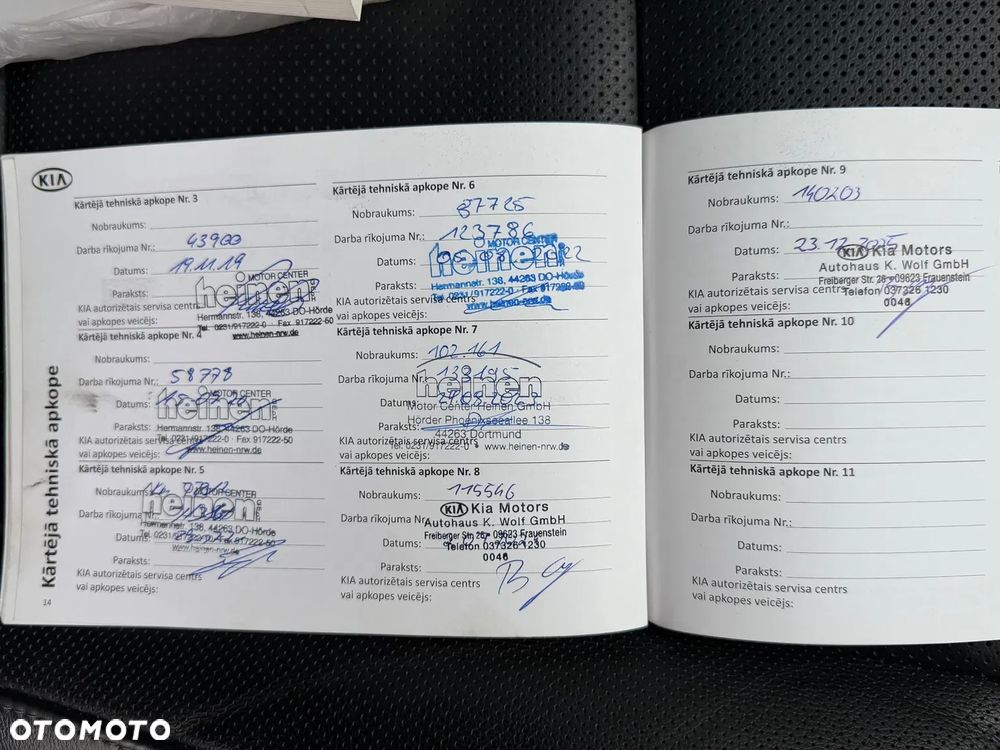 KIA
Kārtējā tehniskā apkope
Kārtējā tehniskā apkope Nr. 3
Nobraukums:
43900
Darba rīkojuma Nr.:
Datums: 19.11.19
MOTOR CENTER
heinen
Paraksts:
Hermannstr. 138, 44263 DO-Hörde
KIA autorizētais servisa centrs
vai apkopes veicējs:
Tel. 0231/917222-0 Fax 917222-50
www.heinen-nrw.de
Kārtējā tehniskā apkope Nr. 4
Nobraukums:
58778
Darba rīkojuma Nr.:
Datums:
MOTOR CENTER
heinen
Paraksts:
Hermannstr. 138, 44263 DO-Hörde
KIA autorizētais servisa centrs
Tel. 0231/917222-0 Fax 917222-50
vai apkopes veicējs:
www.heinen-nrw.de
Kārtējā tehniskā apkope Nr. 5
Nobraukums:
MOTOR CENTER
heinen
Darba rīkojuma Nr.:
Hermannstr. 138, 44263 DO-Hörde
Datums:
Tel. 0231/917222-0 Fax 917222-50
www.heinen-nrw.de
Paraksts:
KIA autorizētais servisa centrs
vai apkopes veicējs:
14
Kārtējā tehniskā apkope Nr. 6
Nobraukums: 87725
Darba rīkojuma Nr.: 123786
MOTOR CENTER
heinen
Datums:
Paraksts:
Hermannstr. 138, 44263 DO-Hörde
KIA autorizētais servisa centrs
Tel. 0231/917222-0 Fax 917222-50
vai apkopes veicējs:
www.heinen-nrw.de
Kārtējā tehniskā apkope Nr. 7
Nobraukums: 102.161
Darba rīkojuma Nr.: 138195
heinen
Datums:
Motor Center Heinen GmbH
Paraksts:
Hörder Phoenixseeallee 138
44263 Dortmund
KIA autorizētais servisa centrs
Tel. 0231/917222-0 • www.heinen-nrw.de
vai apkopes veicējs:
Kārtējā tehniskā apkope Nr. 8
Nobraukums: 115546
KIA Kia Motors
Darba rīkojuma Nr.:
Autohaus K. Wolf GmbH
Freiberger Str. 26 - 09623 Frauenstein
Datums:
Telefon 037326 1230
0046
Paraksts:
KIA autorizētais servisa centrs
vai apkopes veicējs:
Kārtējā tehniskā apkope Nr. 9
Nobraukums: 140203
Darba rīkojuma Nr.:
Datums: 23.12.2025
KIA Kia Motors
Autohaus K. Wolf GmbH
Paraksts:
Freiberger Str. 26 - 09623 Frauenstein
KIA autorizētais servisa centrs
Telefon 037326 1230
vai apkopes veicējs:
0046
Kārtējā tehniskā apkope Nr. 10
Nobraukums:
Darba rīkojuma Nr.:
Datums:
Paraksts:
KIA autorizētais servisa centrs
vai apkopes veicējs:
Kārtējā tehniskā apkope Nr. 11
Nobraukums:
Darba rīkojuma Nr.:
Datums:
Paraksts:
KIA autorizētais servisa centrs
vai apkopes veicējs:
OTOMOTO